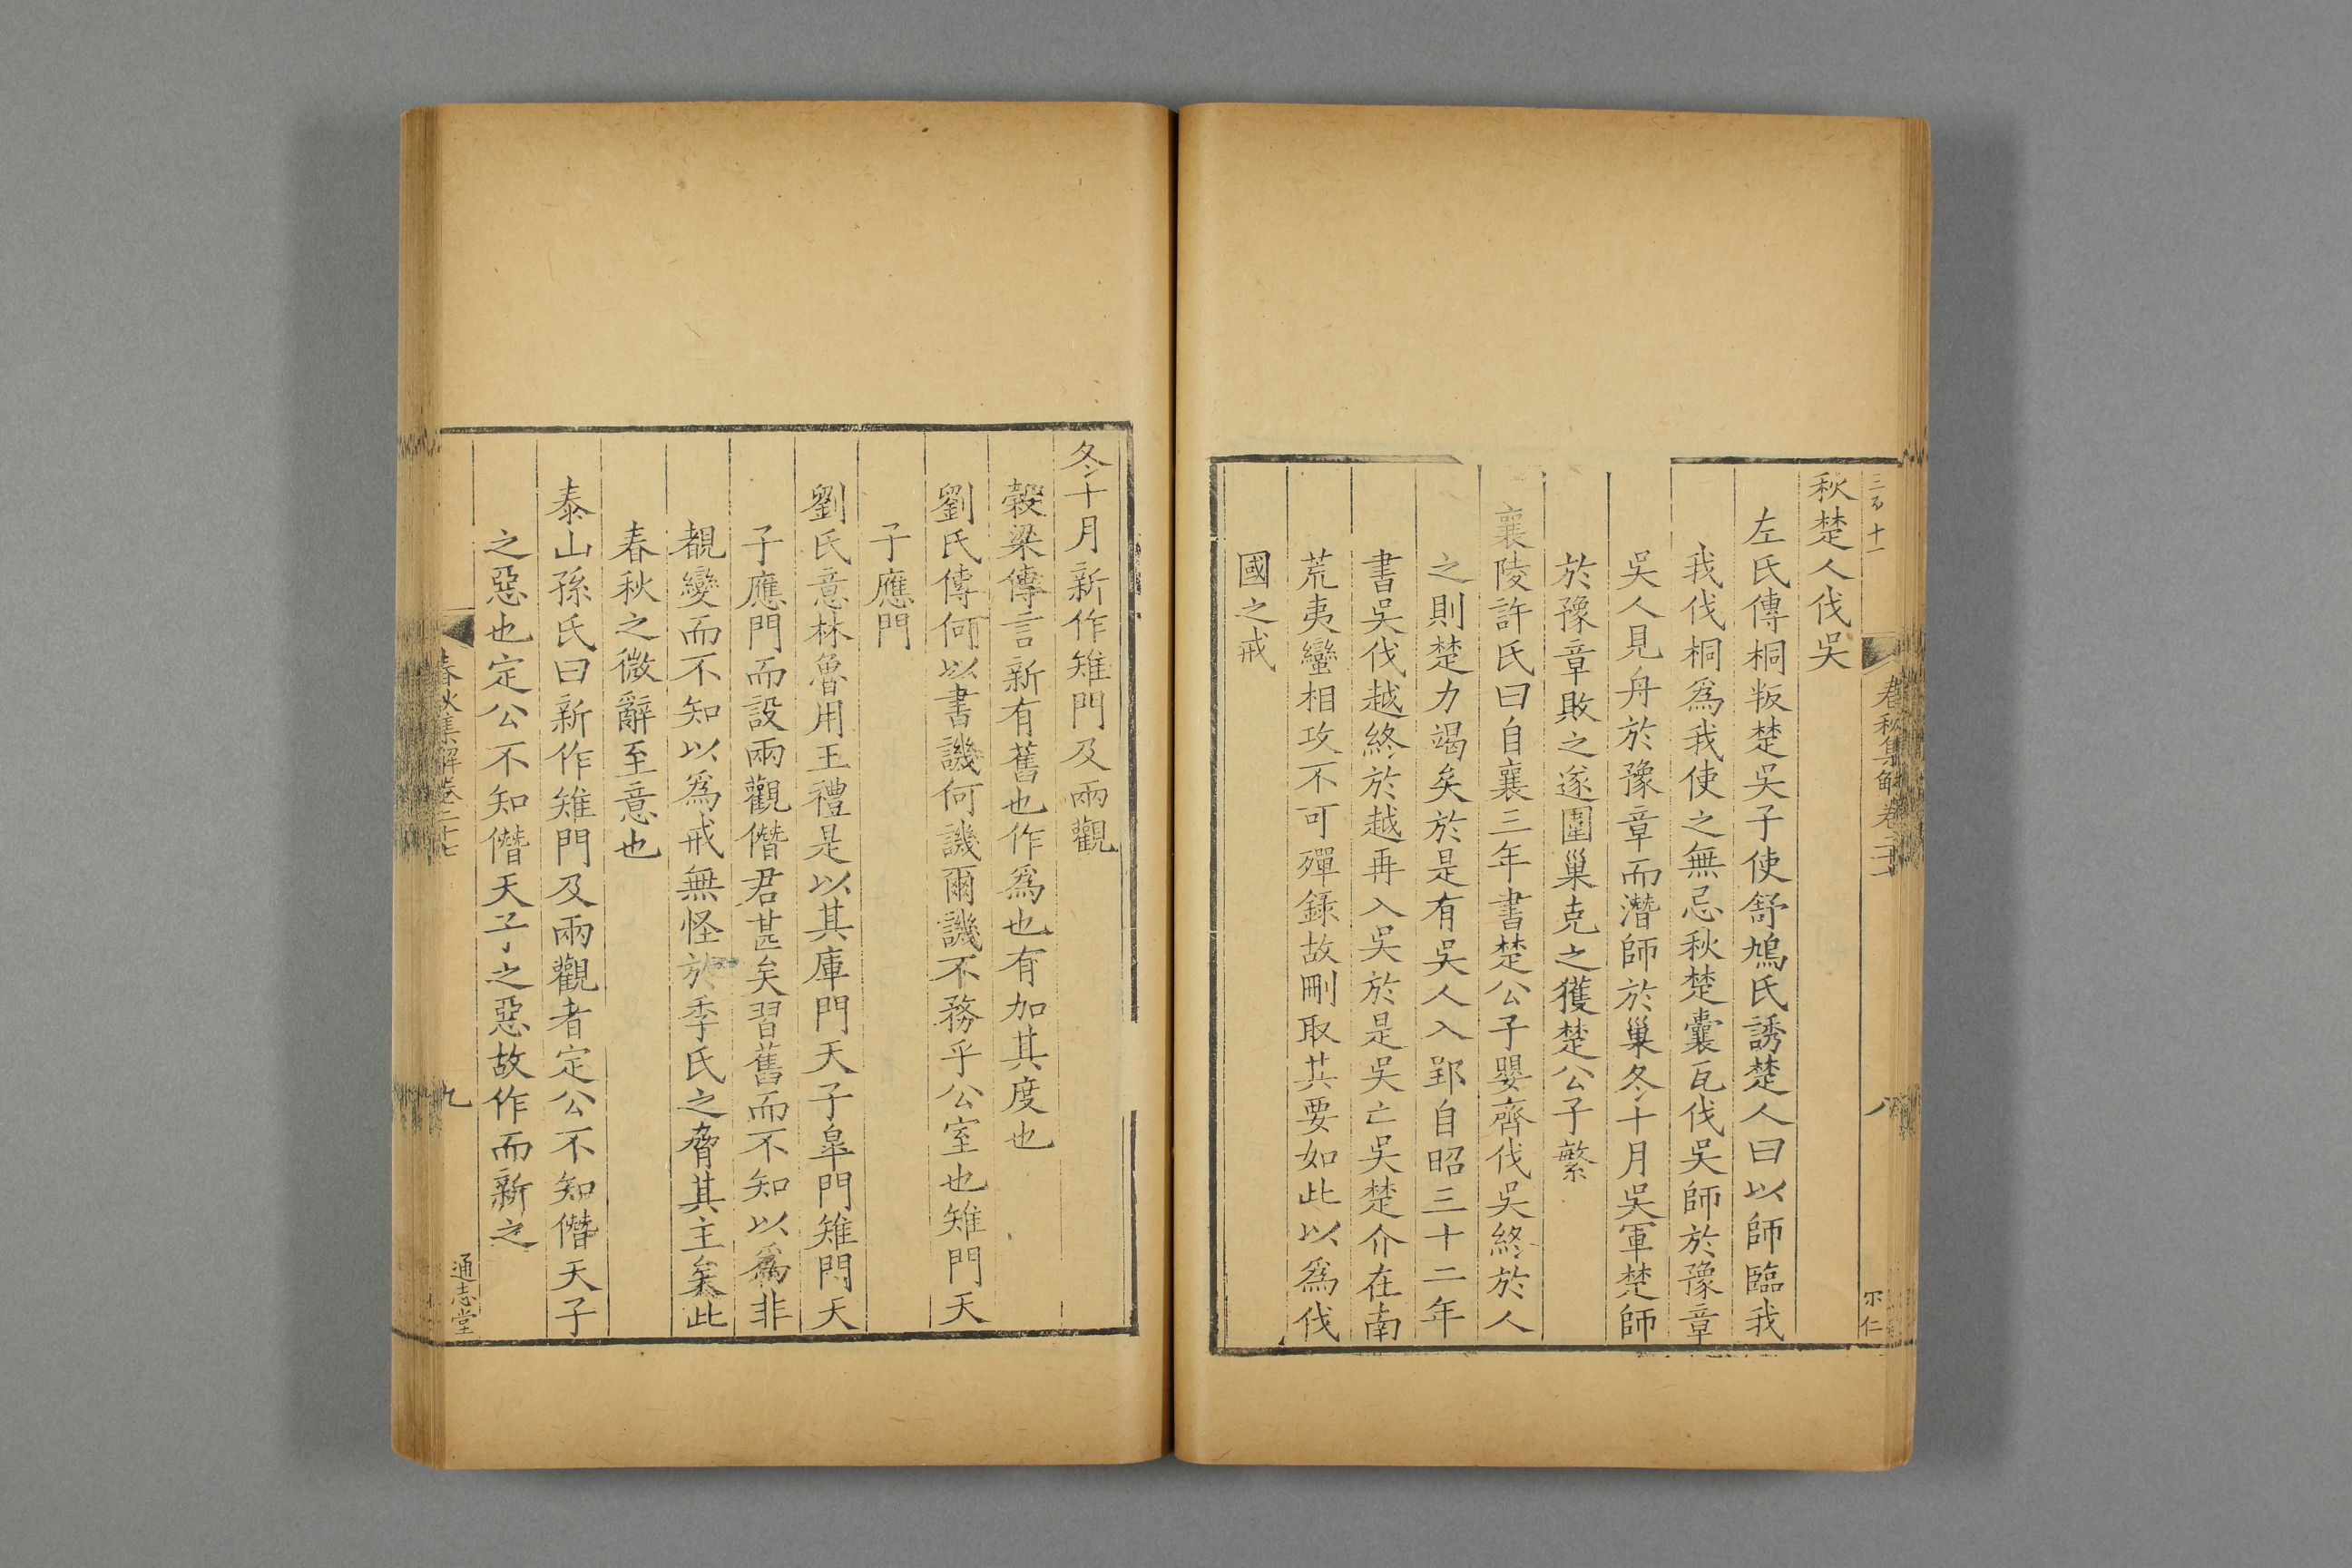 春秋集解卷二十七
八
秋楚人伐吳
左氏傳桐叛楚吳子使舒鳩氏誘楚人曰以師臨我
我伐桐爲我使之無忌秋楚囊瓦伐吳師於豫章
吳人見舟於豫章而潛師於巢冬十月吳軍楚師
於豫章敗之遂圍巢克之獲楚公子繁
襄陵許氏曰自襄三年書楚公子嬰齊伐吳終於人
之則楚力竭矣於是有吳人入郢自昭三十二年
書吳伐越終於越再入吳於是吳亡吳楚介在南
荒夷蠻相攻不可殫錄故刪取其要如此以爲伐
國之戒
冬十月新作雉門及兩觀
穀梁傳言新有舊也作爲也有加其度也
劉氏傳何以書譏何譏爾譏不務乎公室也雉門天
子應門
劉氏意林魯用王禮是以其庫門天子皐門雉門天
子應門而設兩觀僭君甚矣習舊而不知以爲非
覩變而不知以爲戒無怪於季氏之脅其主矣此
春秋之微辭至意也
泰山孫氏曰新作雉門及兩觀者定公不知僭天子
之惡也定公不知僭天子之惡故作而新之
春秋集解卷二十七
九
通志堂